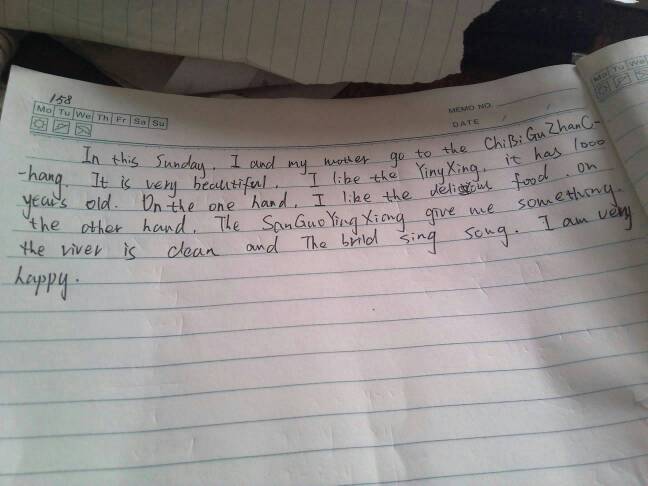 158
Mo Tu We Th Fr Sa Su
MEMO NO.
DATE / /
Mo Tu We
In this Sunday, I and my mother go to the ChiBiGuZhanC-
-hang. It is very beautiful. I like the YingXing, it has 1000
years old. On the one hand, I like the food. on
the other hand, The SanGuoYingXiong give me something.
the river is clean and The brild sing song. I am very
happy.